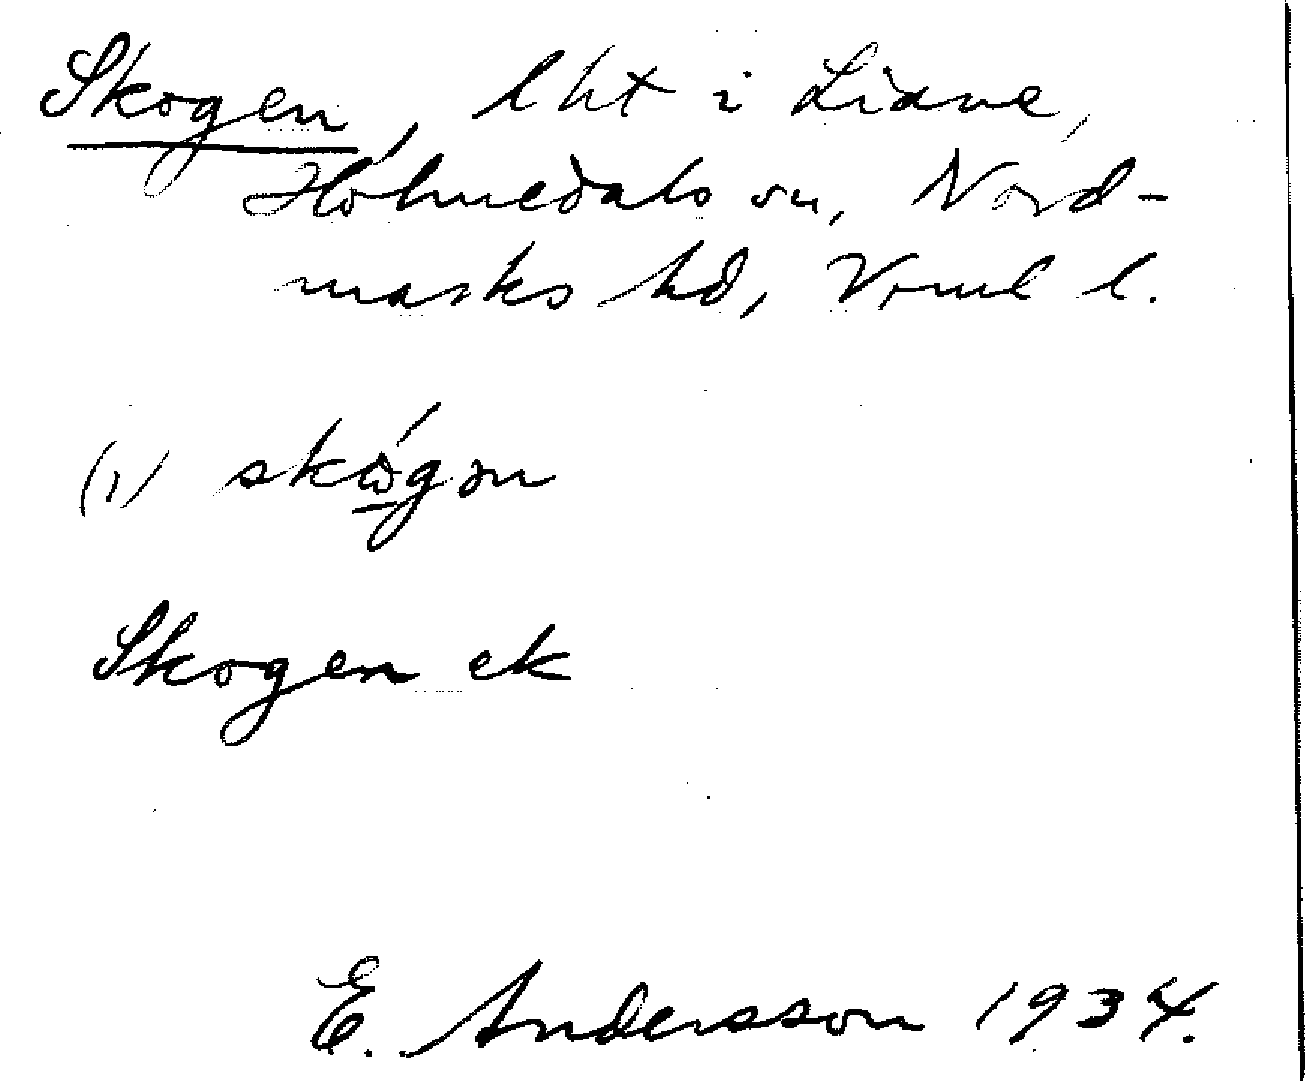 Skogen, lht i Liane,
Holmedals sn, Nord-
marks hd, Vrml l.
(1) skógən
Skogen ek
E. Andersson 1934.